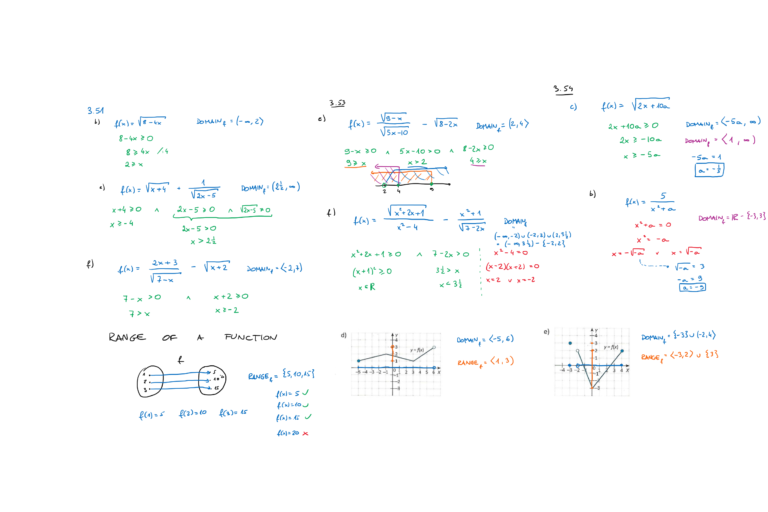 3.51
b) f(x) = √8-4x DOMAIN_f = (-∞, 2⟩
8-4x ≥ 0
8 ≥ 4x /:4
2 ≥ x
e) f(x) = √x+4 + 1/√2x-5 DOMAIN_f = (2½, ∞)
x+4 ≥ 0 ∧ 2x-5 ≥ 0 ∧ √2x-5 ≠ 0
x ≥ -4
2x-5 > 0
x > 2½
f) f(x) = 2x+3/√7-x - √x+2 DOMAIN_f = ⟨-2, 7)
7-x > 0 ∧ x+2 ≥ 0
7 > x x ≥ -2
RANGE OF A FUNCTION
f
1 5
2 10
3 15
RANGE_f = {5, 10, 15}
f(x) = 5 ✓
f(x) = 10 ✓
f(x) = 15 ✓
f(x) = 20 ✗
f(1) = 5 f(2) = 10 f(3) = 15
3.53
e) f(x) = √9-x/√5x-10 - √8-2x DOMAIN_f = (2, 4⟩
9-x ≥ 0 ∧ 5x-10 > 0 ∧ 8-2x ≥ 0
9 ≥ x x > 2 4 ≥ x
2 4 9
f.) f(x) = √x²+2x+1/x²-4 - x²+1/√7-2x DOMAIN_f
(-∞, -2) ∪ (-2, 2) ∪ (2, 3½)
= (-∞, 3½) - {-2, 2}
x²+2x+1 ≥ 0 ∧ 7-2x > 0 x²-4 = 0
(x+1)² ≥ 0 3½ > x (x-2)(x+2) = 0
x ∈ ℝ x < 3½ x = 2 ∨ x = -2
d) y = f(x) DOMAIN_f = ⟨-5, 6)
RANGE_f = ⟨1, 3)
3.54
c) f(x) = √2x+10a DOMAIN_f = ⟨-5a, ∞)
2x+10a ≥ 0
2x ≥ -10a DOMAIN_f = ⟨1, ∞)
x ≥ -5a -5a = 1
a = -⅕
b) f(x) = 5/x²+a DOMAIN_f = ℝ - {-3, 3}
x²+a = 0
x² = -a
x = -√-a ∨ x = √-a
√-a = 3
-a = 9
a = -9
e) y = f(x) DOMAIN_f = {-3} ∪ (-2, 4⟩
RANGE_f = ⟨-3, 2⟩ ∪ {3}